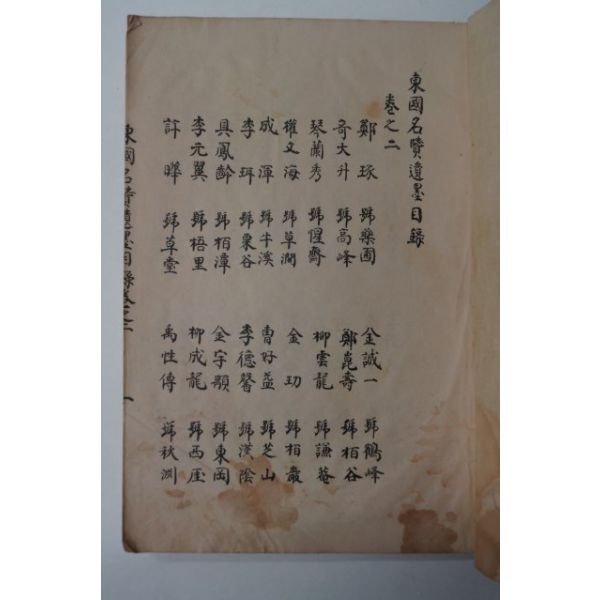 東國名贒遺墨目錄
卷之二
鄭琢 號藥圃 金誠一 號鶴峰
奇大升 號高峰 鄭崑壽 號栢谷
琴蘭秀 號惺齋 柳雲龍 號謙菴
權文海 號草澗 金玏 號栢巖
成渾 號牛溪 曺好益 號芝山
李珥 號栗谷 李德馨 號漢陰
具鳳齡 號栢潭 金宇顒 號東岡
李元翼 號梧里 柳成龍 號西厓
許曄 號草堂 禹性傳 號秋淵
東國名贒遺墨目錄卷之二 一